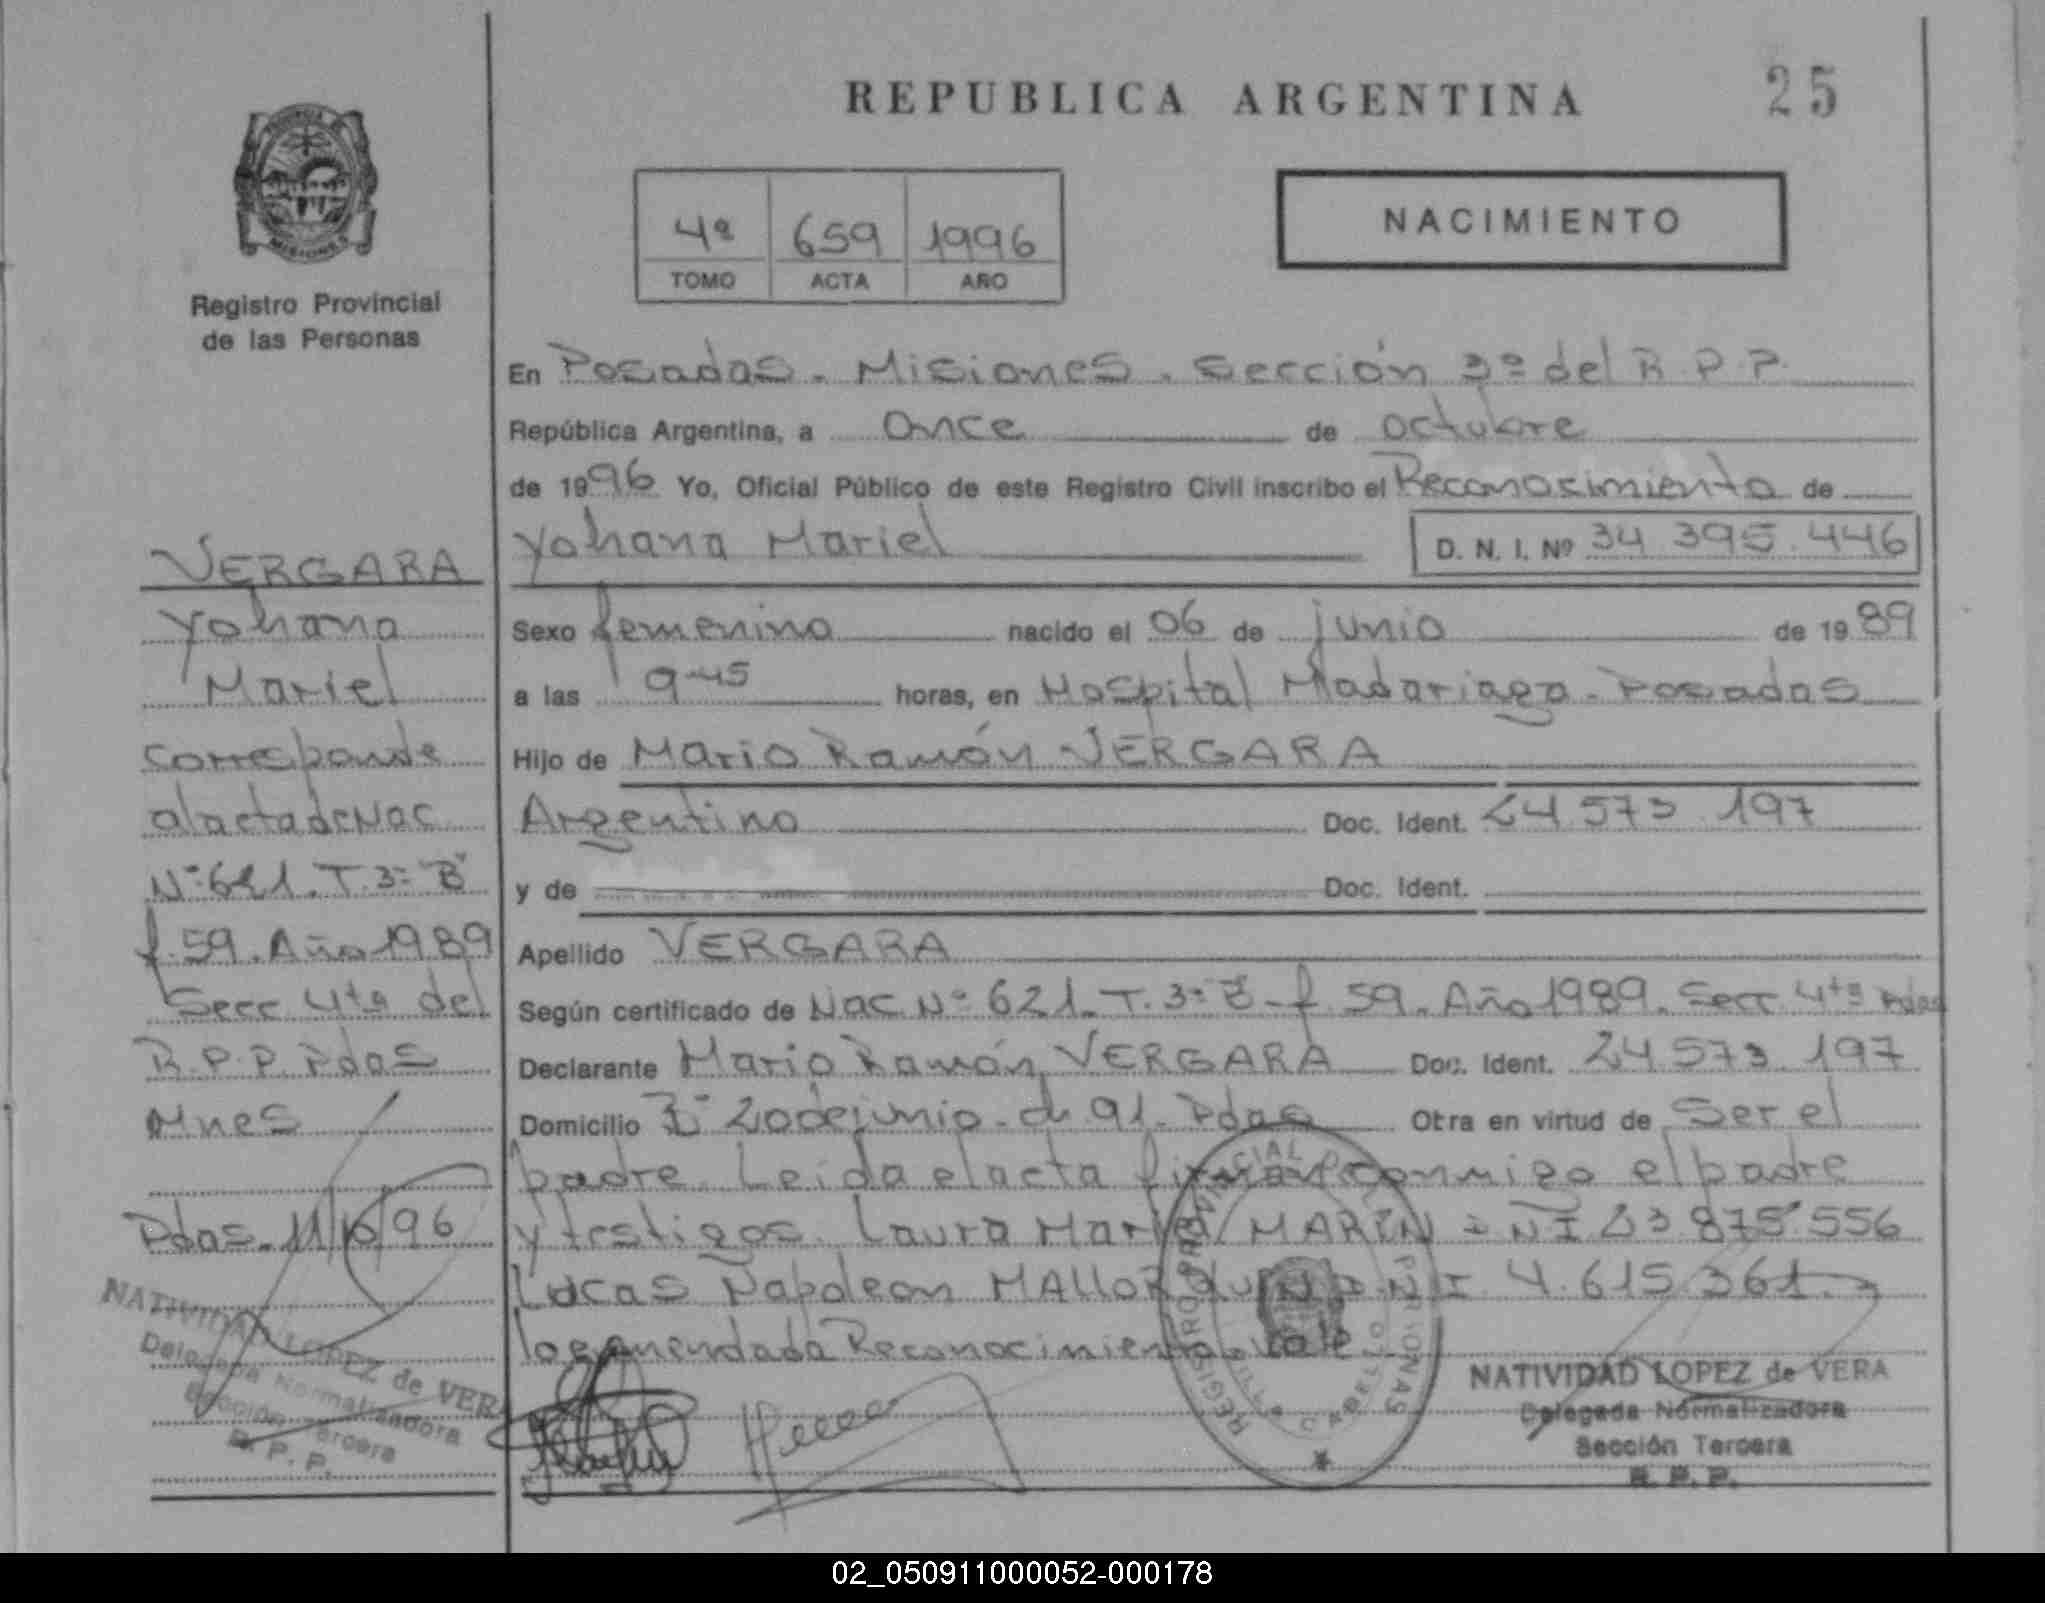 REPUBLICA ARGENTINA
25
4ª 659 1996
TOMO ACTA AÑO
NACIMIENTO
Registro Provincial
de las Personas
En Posadas. Misiones. Sección 3ª del R.P.P.
República Argentina, a once de octubre
de 1996 Yo, Oficial Público de este Registro Civil inscribo el Reconocimiento de
Yohana Mariel D. N. I. Nº 34 395.446
Sexo femenino nacido el 06 de junio de 1989
a las 9-45 horas, en Hospital Madariaga - Posadas
Hijo de Mario Ramón VERGARA
Argentino Doc. Ident. 24 573 197
y de Doc. Ident.
Apellido VERGARA
Según certificado de Nac. Nº 621. T. 3º B - f. 59. Año 1989. Secc 4ta Pdas
Declarante Mario Ramón VERGARA Doc. Ident. 24 573 197
Domicilio Bº 20 de junio - ch 91. Pdas Otra en virtud de Ser el
padre. Leída el acta firman conmigo el padre
y testigos. Laura María MARIN DNI 23 875.556
Lucas Napoleon MALLORQUIN D.N.I 4.615.361.
lo enmendado Reconocimiento. Vale
VERGARA
Yohana
Mariel
Corresponde
al acta de Nac
Nº 621. T. 3º "B"
f. 59. Año 1989
Secc 4ta del
R.P.P. Pdas
Mnes
Pdas. 11/10/96
NATIVIDAD LOPEZ de VERA
Delegada Normalizadora
Sección Tercera
R. P. P.
NATIVIDAD LOPEZ de VERA
Delegada Normalizadora
Sección Tercera
R. P. P.
02_050911000052-000178